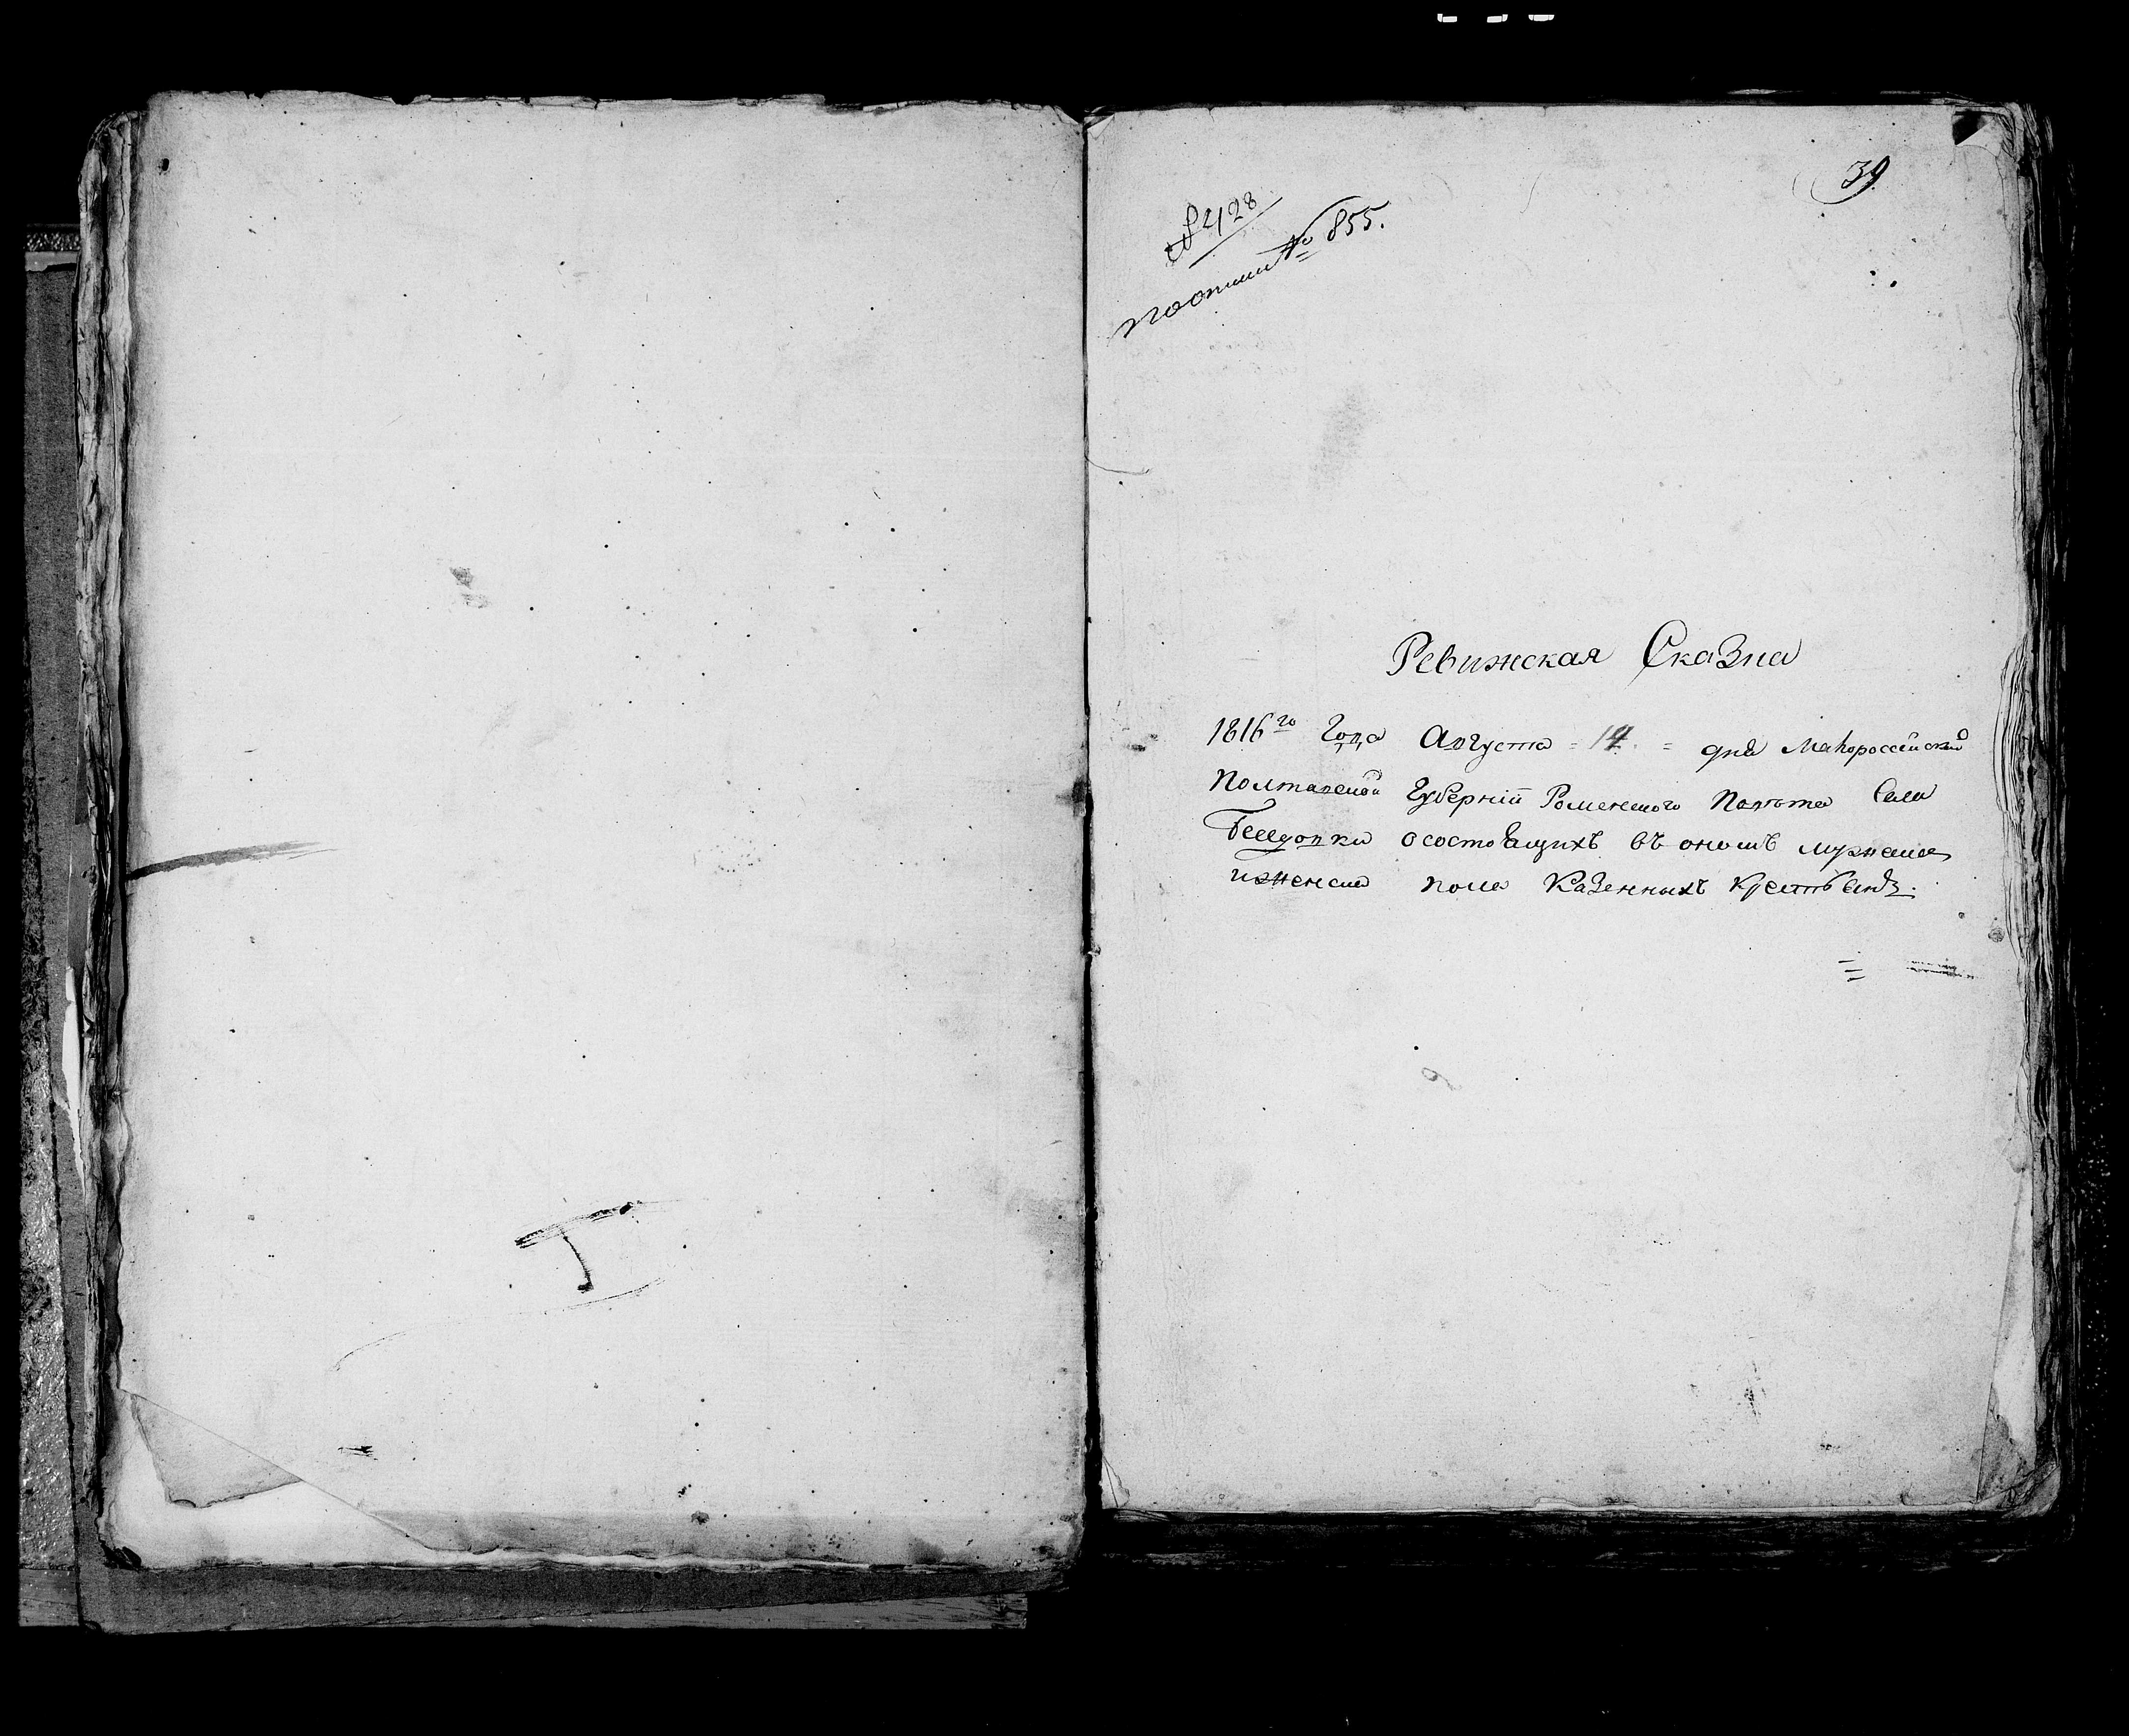 39
8428
по описи № 855.
Ревижская Сказка
1816го Года Августа = 14 = дня Малороссийской
Полтавской Губернии Роменского Повета Села
Беседовки осостоящихъ въ ономъ мужеска
иженска пола Казенныхъ крестьянъ.